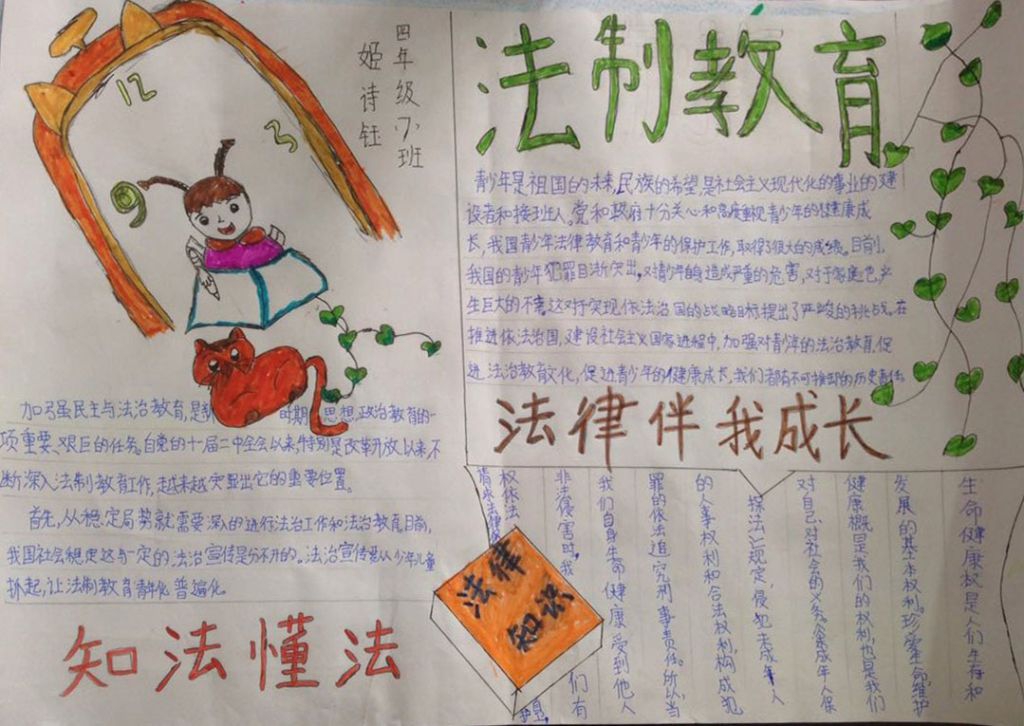 法制教育
四年级(7)班
姬诗钰
12
3
9
青少年是祖国的未来,民族的希望,是社会主义现代化的事业的建
设者和接班人。党和政府十分关心和高度重视青少年的健康成
长,我国青少年法律教育和青少年的保护工作,取得了很大的成绩。目前,
我国的青少年犯罪日渐突出,对青少年自身造成严重的危害,对于家庭也产
生巨大的不幸,这对于实现依法治国的战略目标提出了严峻的挑战。在
推进依法治国,建设社会主义国家进程中,加强对青少年的法治教育,促
进法治教育文化,促进青少年的健康成长,我们都有不可推卸的历史责任。
法律伴我成长
加强民主与法治教育,是新 时期 思想,政治教育的一
项重要、艰巨的任务。自党的十届二中全会以来,特别是改革开放以来,不
断深入法制教育工作,越来越突显出它的重要位置。
首先,从稳定局势就需要深入的进行法治工作和法治教育,目前,
我国社会稳定这与一定的法治宣传是分不开的。法治宣传要从少年儿童
抓起,让法制教育青年化、普遍化。
知法懂法
法律
知识
生命健康权是人们生存和
发展的基本权利。珍爱生命,维护
健康概是我们的权利,也是我们
对自己、对社会的义务。《未成年人保
探法》规定,侵犯未成年人
的人事权利和合法权利,构成犯
罪的依法追究刑事责任。所以,当
我们自身生命健康受到他人
非法侵害时,我 们有
权依法
请求法律保 护